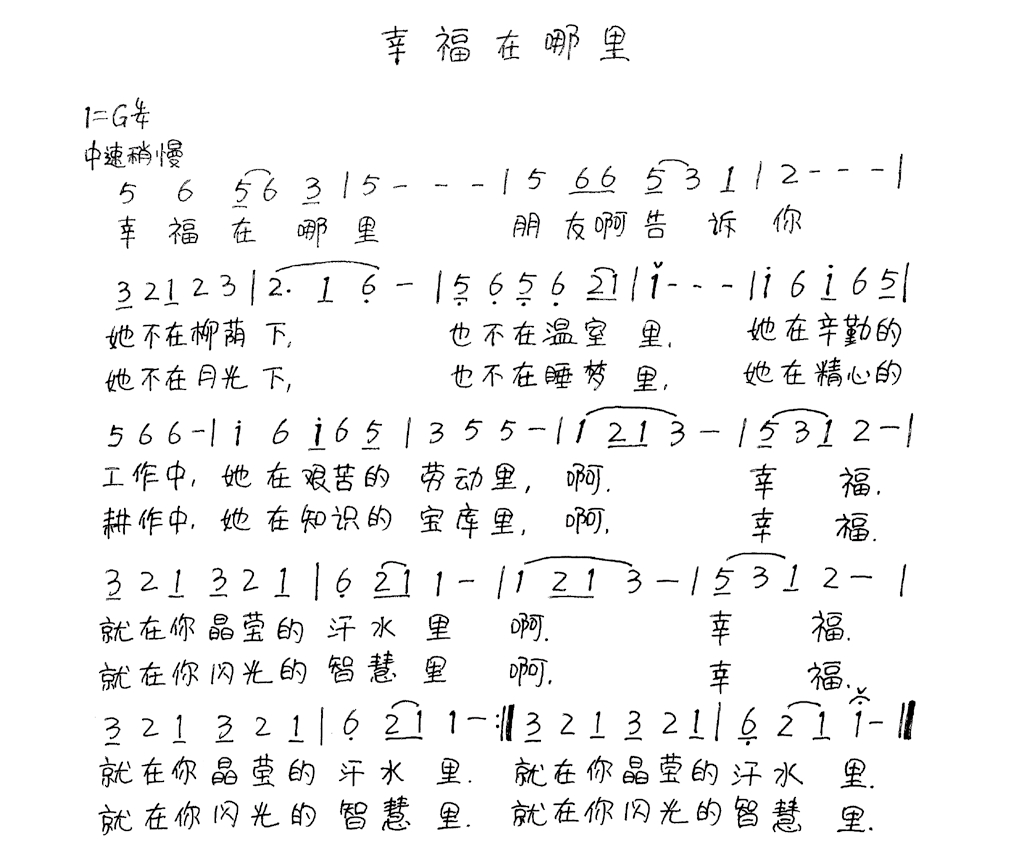 幸福在哪里
1=G 4/4
中速稍慢
5 6 56 3 | 5 - - - | 5 66 5 3 1 | 2 - - - |
幸福在哪里 朋友啊告诉你
3 2 1 2 3 | 2. 1 6 - | 5 6 5 6 21 | i - - - | i 6 i 6 5 |
她不在柳荫下, 也不在温室里. 她在辛勤的
她不在月光下, 也不在睡梦里, 她在精心的
5 6 6 - | i 6 i 6 5 | 3 5 5 - | 1 21 3 - | 5 3 1 2 - |
工作中, 她在艰苦的劳动里, 啊. 幸福.
耕作中, 她在知识的宝库里, 啊, 幸福.
3 2 1 3 2 1 | 6 21 1 - | 1 21 3 - | 5 3 1 2 - |
就在你晶莹的汗水里 啊. 幸福.
就在你闪光的智慧里 啊. 幸福.
3 2 1 3 2 1 | 6 21 1 - :‖ 3 2 1 3 2 1 | 6 2 1 i - ‖
就在你晶莹的汗水里. 就在你晶莹的汗水里.
就在你闪光的智慧里. 就在你闪光的智慧里.